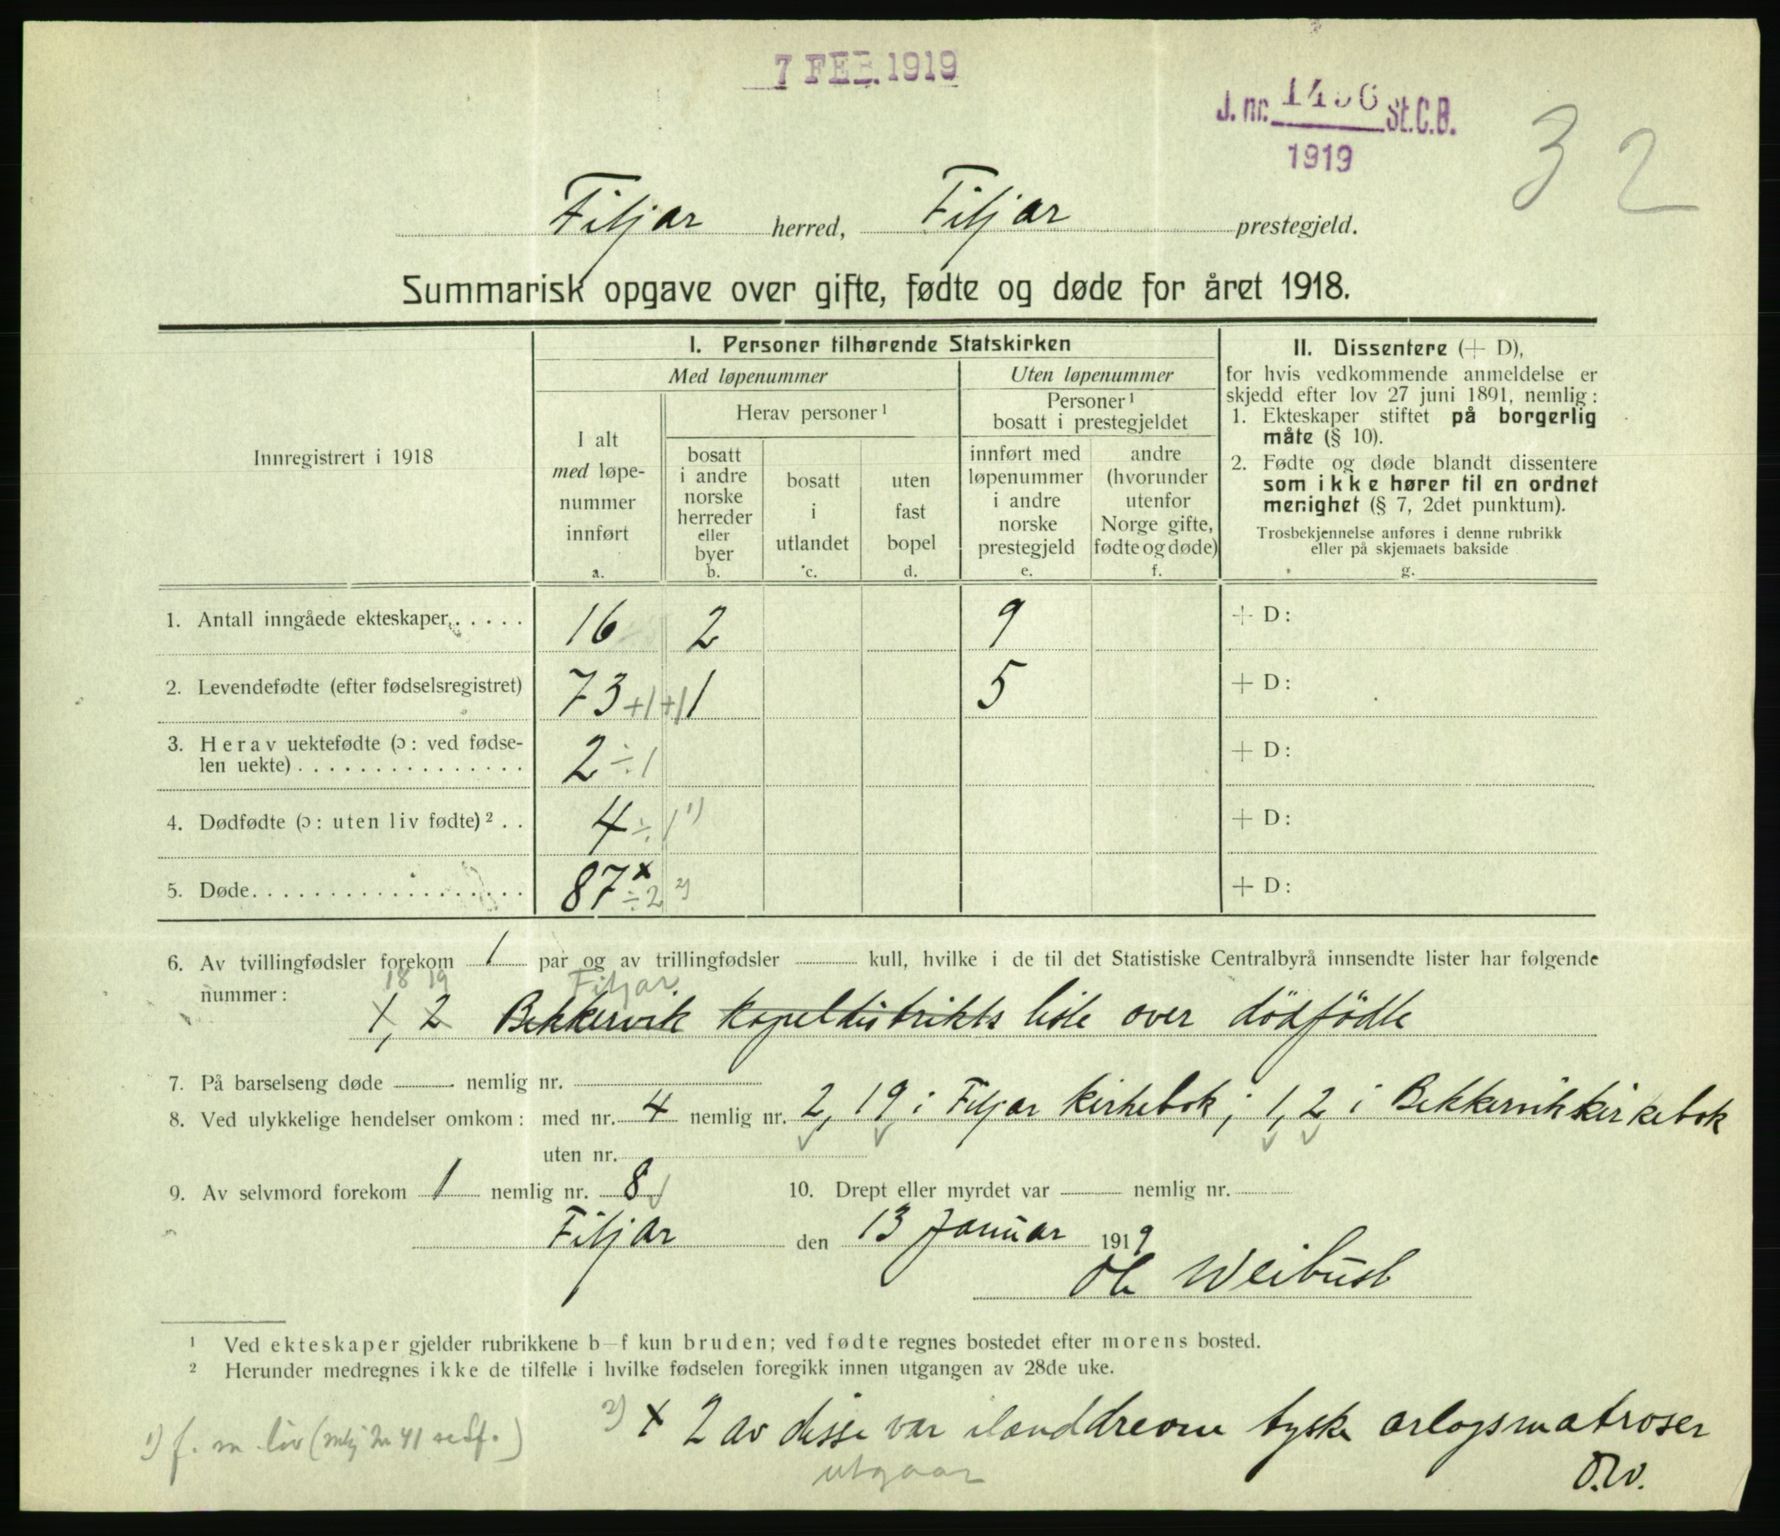 7 FEB. 1919
J. nr. 1456 St.C.B.
1919
32
Fitjar herred, Fitjar prestegjeld.
Summarisk opgave over gifte, fødte og døde for året 1918.
Innregistrert i 1918
I. Personer tilhørende Statskirken
Med løpenummer
Uten løpenummer
I alt
med løpe-
nummer
innført
a.
Herav personer¹
bosatt
i andre
norske
herreder
eller
byer
b.
bosatt
i
utlandet
c.
uten
fast
bopel
d.
Personer¹
bosatt i prestegjeldet
innført med
løpenummer
i andre
norske
prestegjeld
e.
andre
(hvorunder
utenfor
Norge gifte,
fødte og døde)
f.
II. Dissentere (+ D),
for hvis vedkommende anmeldelse er
skjedd efter lov 27 juni 1891, nemlig:
1. Ekteskaper stiftet på borgerlig
måte (§ 10).
2. Fødte og døde blandt dissentere
som ikke hører til en ordnet
menighet (§ 7, 2det punktum).
Trosbekjennelse anføres i denne rubrikk
eller på skjemaets bakside
g.
1. Antall inngåede ekteskaper..... 16 2 9 + D:
2. Levendefødte (efter fødselsregistret) 73 +1 +1 1 5 + D:
3. Herav uektefødte (ɔ: ved fødse-
len uekte)............... 2 ÷1 + D:
4. Dødfødte (ɔ: uten liv fødte)².. 4 ÷1 ¹) + D:
5. Døde.................. 87 x ÷2 ²) + D:
6. Av tvillingfødsler forekom 1 par og av trillingfødsler kull, hvilke i de til det Statistiske Centralbyrå innsendte lister har følgende
nummer:
18 19 Fitjar
1, 2 Bekkervik kapeldistrikts liste over dödfödte
7. På barselseng døde nemlig nr.
8. Ved ulykkelige hendelser omkom: med nr. 4 nemlig nr. 2, 19 i Fitjar kirkebok; 1, 2 i Bekkervik kirkebok
uten nr.
9. Av selvmord forekom 1 nemlig nr. 8 10. Drept eller myrdet var nemlig nr.
Fitjar den 13 Januar 1919
Ole Weibust
¹ Ved ekteskaper gjelder rubrikkene b—f kun bruden; ved fødte regnes bostedet efter morens bosted.
² Herunder medregnes ikke de tilfelle i hvilke fødselen foregikk innen utgangen av 28de uke.
²) x 2 av disse var ilanddrevne tyske orlogsmatroser
utgaar
O.W.
¹) f. m. liv (nlg nr 41 )